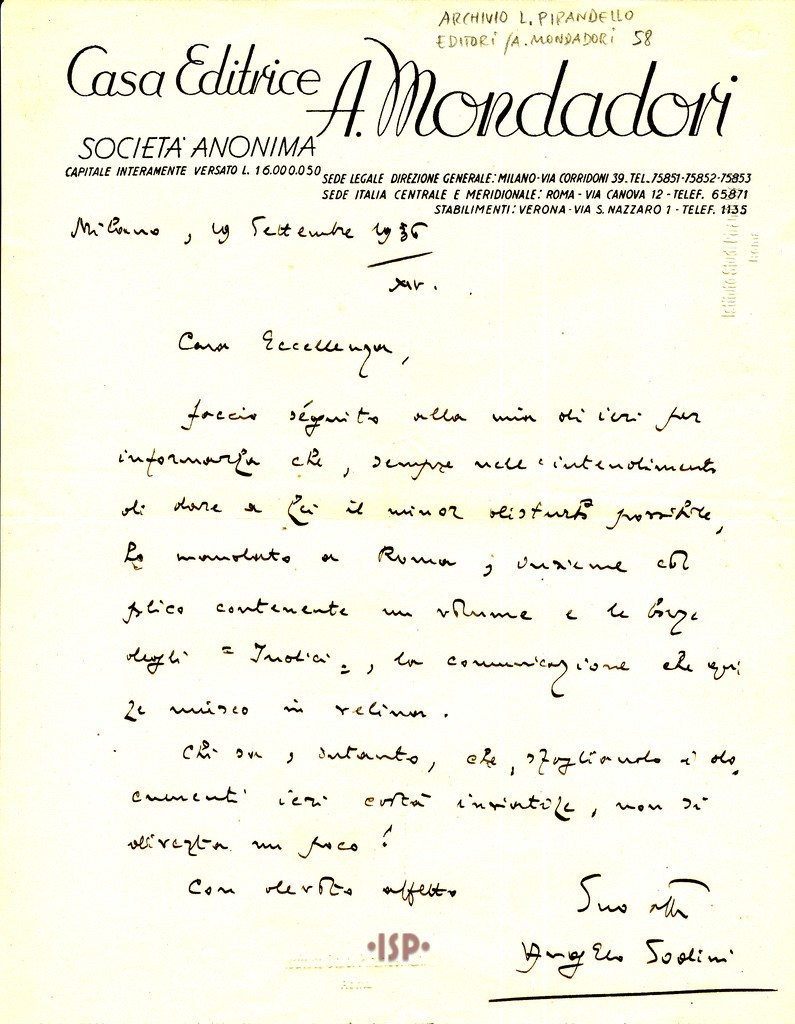 ARCHIVIO L. PIRANDELLO
EDITORI /A. MONDADORI 58
Casa Editrice A. Mondadori
SOCIETÀ ANONIMA
CAPITALE INTERAMENTE VERSATO L. 16.000.050
SEDE LEGALE DIREZIONE GENERALE: MILANO - VIA CORRIDONI 39. TEL. 75851-75852-75853
SEDE ITALIA CENTRALE E MERIDIONALE: ROMA - VIA CANOVA 12 - TELEF. 65871
STABILIMENTI: VERONA - VIA S. NAZZARO 1 - TELEF. 1135
Milano, 19 Settembre 1936
XIV.
Cara Eccellenza,
faccio séguito alla mia di ieri per
informarLa che, sempre nell'intendimento
di dare a Lei il minor disturbo possibile,
ho mandato a Roma, insieme col
plico contenente un volume e le bozze
degli "Indici", la comunicazione che qui
Le unisco in velina.
Chi sa, intanto, che, sfogliando i do
cumenti ieri costà inviatiLe, non si
diverta un poco!
Con devoto affetto
Suo aff
Angelo Sodini
·ISP·